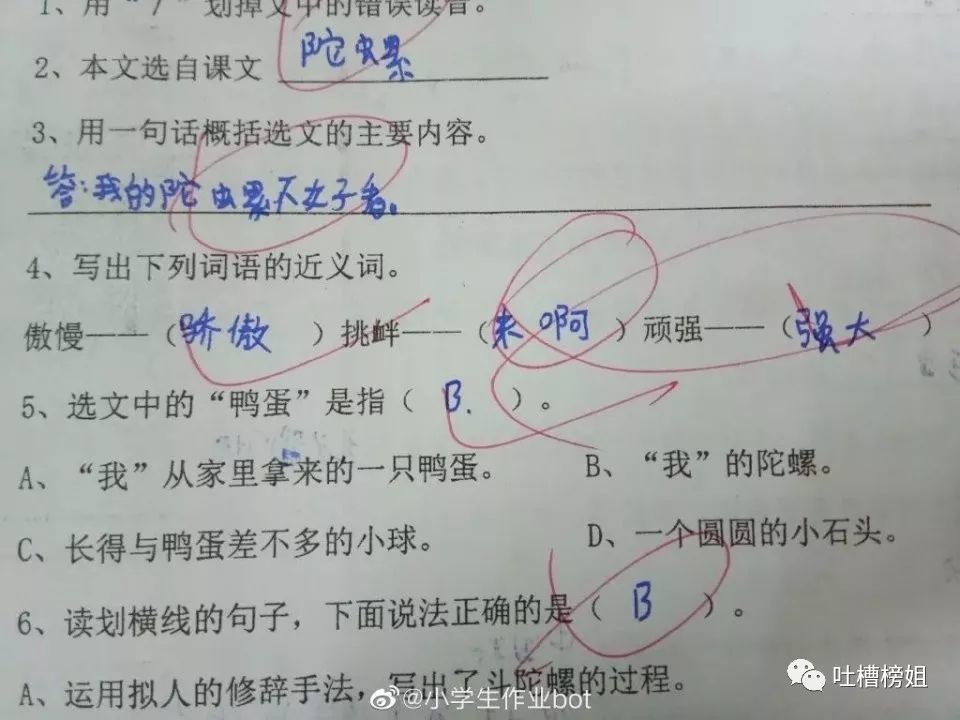 1、用“/”划掉文中的错误读音。
2、本文选自课文 陀虫累
3、用一句话概括选文的主要内容。
答:我的陀虫累不女子看。
4、写出下列词语的近义词。
傲慢——（骄傲）挑衅——（来啊）顽强——（强大）
5、选文中的“鸭蛋”是指（B.）。
A、“我”从家里拿来的一只鸭蛋。 B、“我”的陀螺。
C、长得与鸭蛋差不多的小球。 D、一个圆圆的小石头。
6、读划横线的句子，下面说法正确的是（B）。
A、运用拟人的修辞手法，写出了斗陀螺的过程。
@小学生作业bot
吐槽榜姐